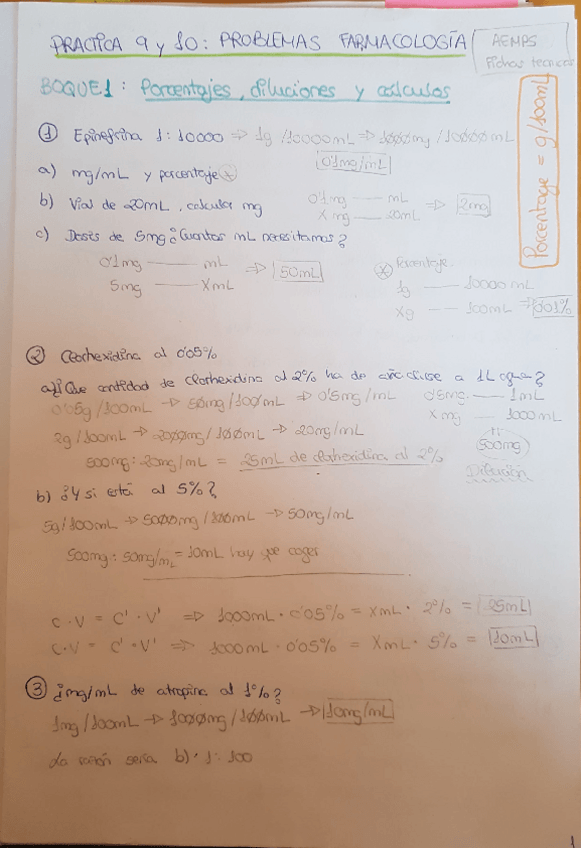 PRACTICA 9 y 10: PROBLEMAS FARMACOLOGÍA
AEMPS
Fichas tecnicas
BOQUE 1: Porcentajes, diluciones y calculos
Porcentaje = g/100mL
① Epinefrina 1:10000 => 1g/10000mL => 1000mg/10000mL
0'1mg/mL
a) mg/mL y porcentaje *
b) Vial de 20mL, calcular mg
0'1mg — mL
X mg — 20mL => 2mg
c) Dosis de 5mg ¿Cuantos mL necesitamos?
0'1mg — mL
5mg — XmL => 50mL
* Porcentaje
1g — 10000mL
Xg — 100mL => 0'01%
② Clorhexidina al 0'05%
a) ¿Que cantidad de clorhexidina al 2% ha de añadirse a 1L agua?
0'05g/100mL -> 50mg/100mL => 0'5mg/mL
0'5mg — 1mL
X mg — 1000mL
500mg
Dilución
2g/100mL -> 2000mg/100mL -> 20mg/mL
500mg : 20mg/mL = 25mL de clorhexidina al 2%
b) ¿Y si está al 5%?
5g/100mL -> 5000mg/100mL -> 50mg/mL
500mg : 50mg/mL = 10mL hay que coger
C·V = C'·V' => 1000mL · 0'05% = XmL · 2% = 25mL
C·V = C'·V' => 1000mL · 0'05% = XmL · 5% = 10mL
③ ¿mg/mL de atropina al 1%?
1mg/100mL -> 1000mg/100mL -> 10mg/mL
La razón sería b) 1:100
1